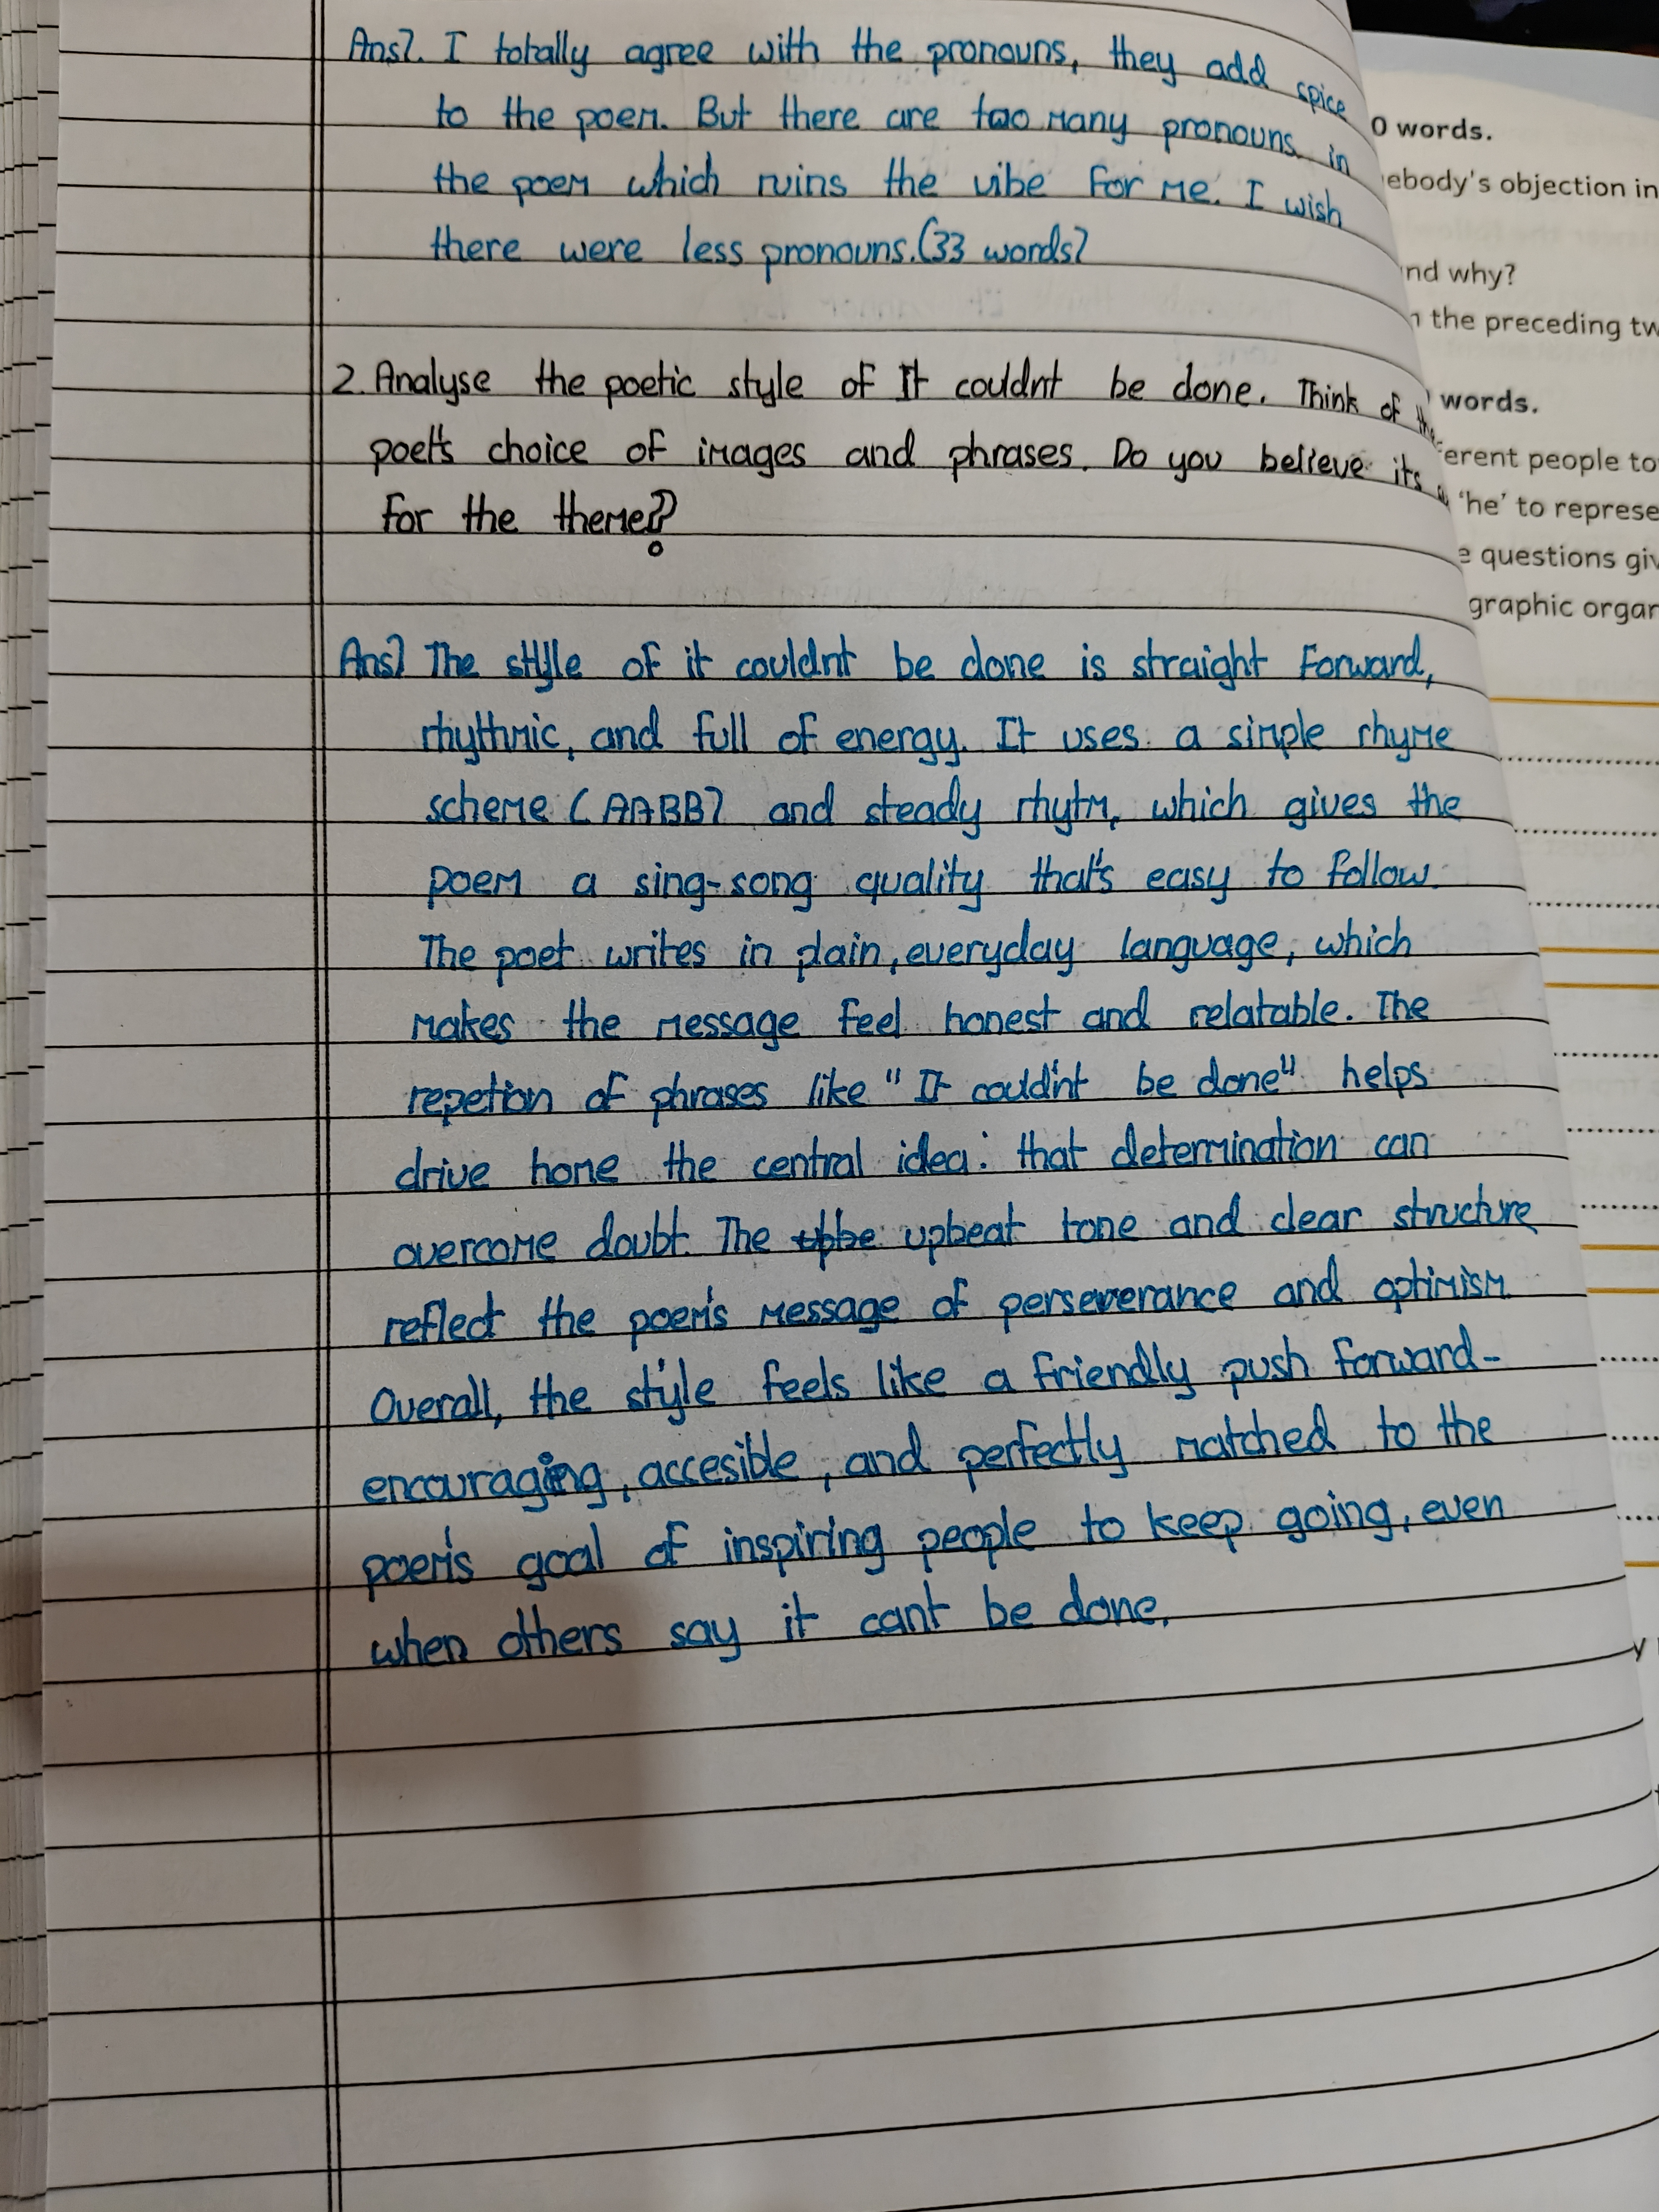 Ans). I totally agree with the pronouns, they add spice
to the poem. But there are too many pronouns in
the poem which ruins the vibe for me. I wish
there were less pronouns. (33 words)
2. Analyse the poetic style of It couldnt be done. Think of the
poet's choice of images and phrases. Do you believe its
for the theme?
Ans) The style of it couldnt be done is straight forward,
rhythmic, and full of energy. It uses a simple rhyme
scheme (AABB) and steady rhytm, which gives the
poem a sing-song quality that's easy to follow.
The poet writes in plain, everyday language, which
makes the message feel honest and relatable. The
repetion of phrases like "It couldn't be done" helps
drive home the central idea: that determination can
overcome doubt. The upbeat tone and clear structure
reflect the poem's message of perseverance and optimism
Overall, the style feels like a friendly push forward-
encouraging, accesible, and perfectly matched to the
poem's goal of inspiring people to keep going, even
when others say it cant be done.
0 words.
ebody's objection in
nd why?
the preceding tw
words.
erent people to
'he' to represe
questions giv
graphic organ